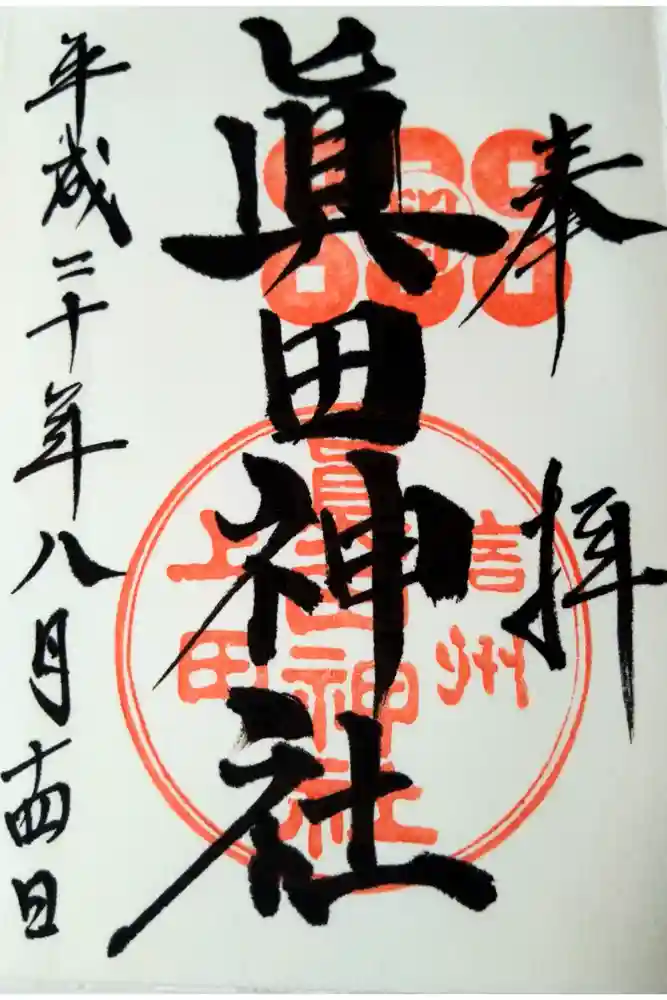 奉拝
眞田神社
信州
眞田神社
上田
平成二十年八月十四日